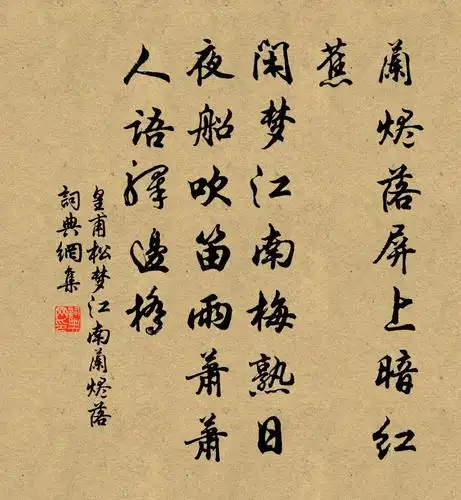 蘭烬落屏上暗紅
蕉
闲梦江南梅熟日
夜船吹笛雨蕭蕭
人語驛邊橋
皇甫松梦江南蘭烬落
詞典網集